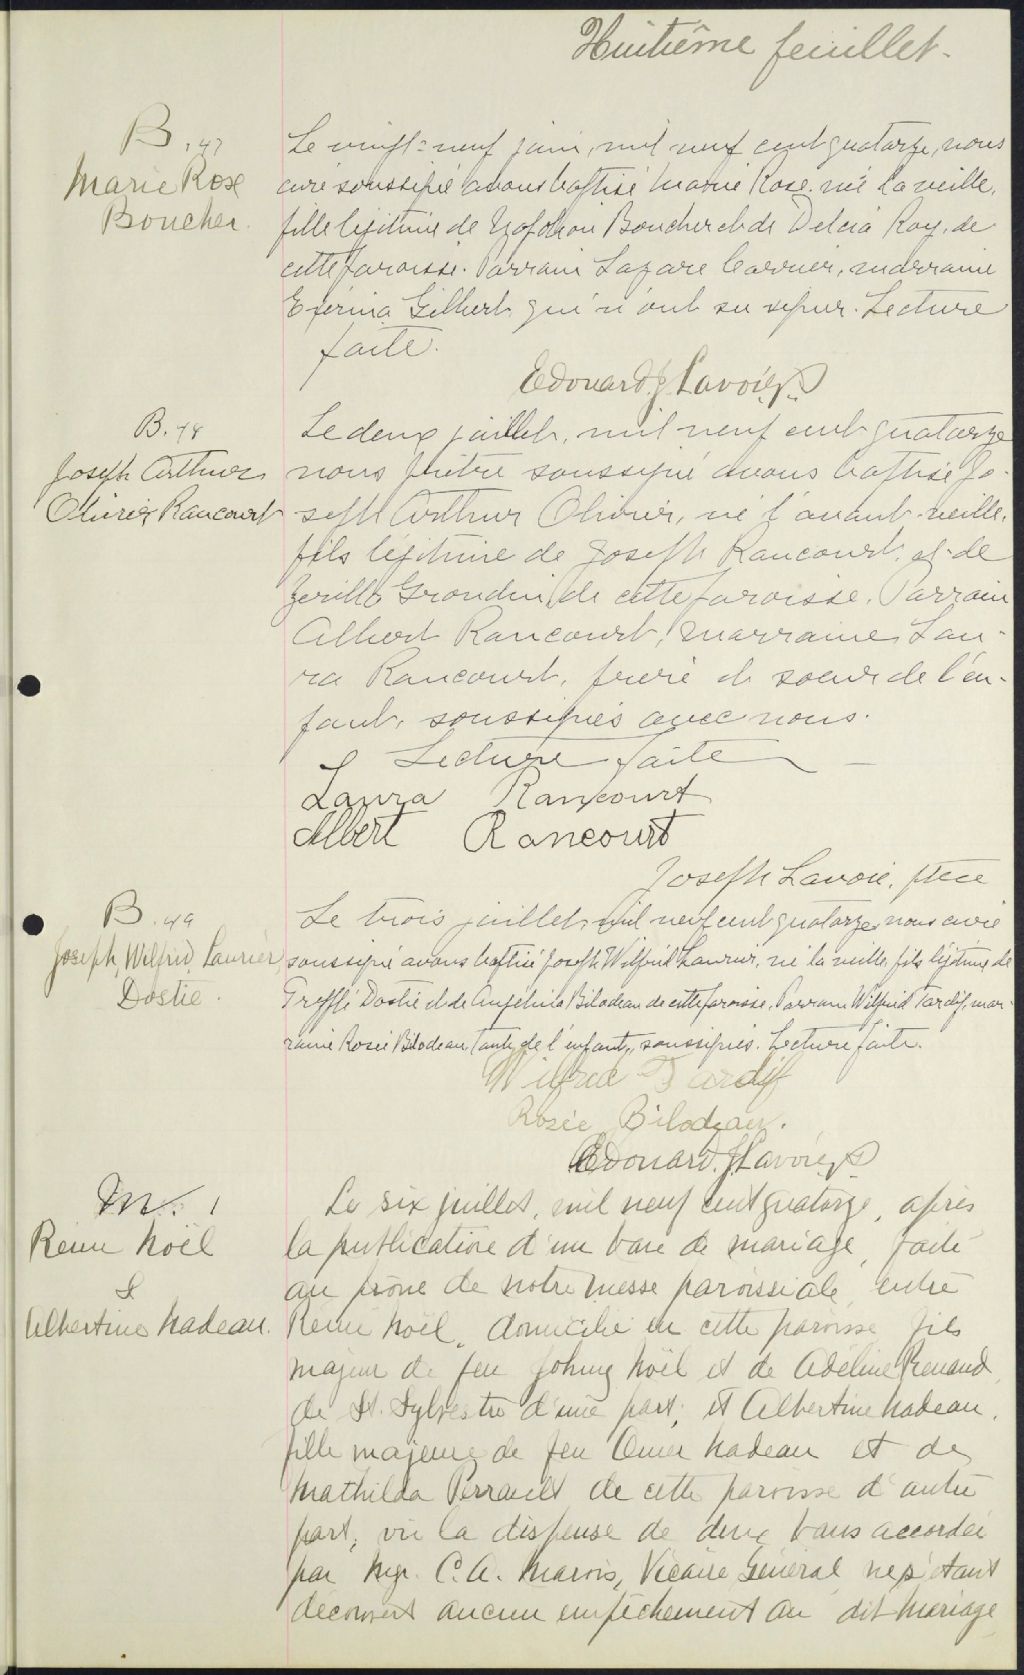 Huitième feuillet.
B. 47
Marie Rose
Boucher.
Le vingt-neuf juin, mil neuf cent quatorze, nous
curé soussigné avons baptisé Marie Rose, née la veille,
fille légitime de Boucher et de Délcia Roy, de
cette paroisse. Parrain Lazare Carrier, marraine
Exérina Gilbert, qui n'ont su signer. Lecture
faite.
Edouard J. Lavoie, P.
B. 48
Joseph Arthur
Olivier Rancourt
Le deux juillet, mil neuf cent quatorze
nous prêtre soussigné avons baptisé Jo-
seph Arthur Olivier, né l'avant-veille,
fils légitime de Joseph Rancourt, et de
Grondin de cette paroisse. Parrain
Albert Rancourt, marraine Lau-
ra Rancourt, frère et soeur de l'en-
fant, soussignés avec nous.
Lecture faite
Laura Rancourt
Albert Rancourt
Joseph Lavoie, ptre
B. 49
Joseph, Wilfrid, Laurier,
Dostie.
Le trois juillet, mil neuf cent quatorze, nous curé
soussigné avons baptisé Joseph Wilfrid Laurier, né la veille, fils légitime de
Trefflé Dostie et de Angélina Bilodeau de cette paroisse. Parrain Wilfrid Tardif, mar-
raine Rosée Bilodeau, tante de l'enfant, soussignés. Lecture faite.
Wilfrid Tardif
Rosée Bilodeau.
Edouard J. Lavoie, P.
M. 1
Rémi Noël
&
Albertine Nadeau.
Le six juillet, mil neuf cent quatorze, après
la publication d'un banc de mariage, faite
au prône de notre messe paroissiale, entre
Rémi Noël, domicilié en cette paroisse, fils
majeur de feu Johny Noël et de Adéline Renaud,
de St. Sylvestre d'une part; et Albertine Nadeau,
fille majeure de feu Omer Nadeau et de
Mathilda Perrault de cette paroisse d'autre
part; vu la dispense de deux bans accordée
par Mgr. C. A. Marois, Vicaire Général, ne s'étant
découvert aucun empêchement au dit mariage